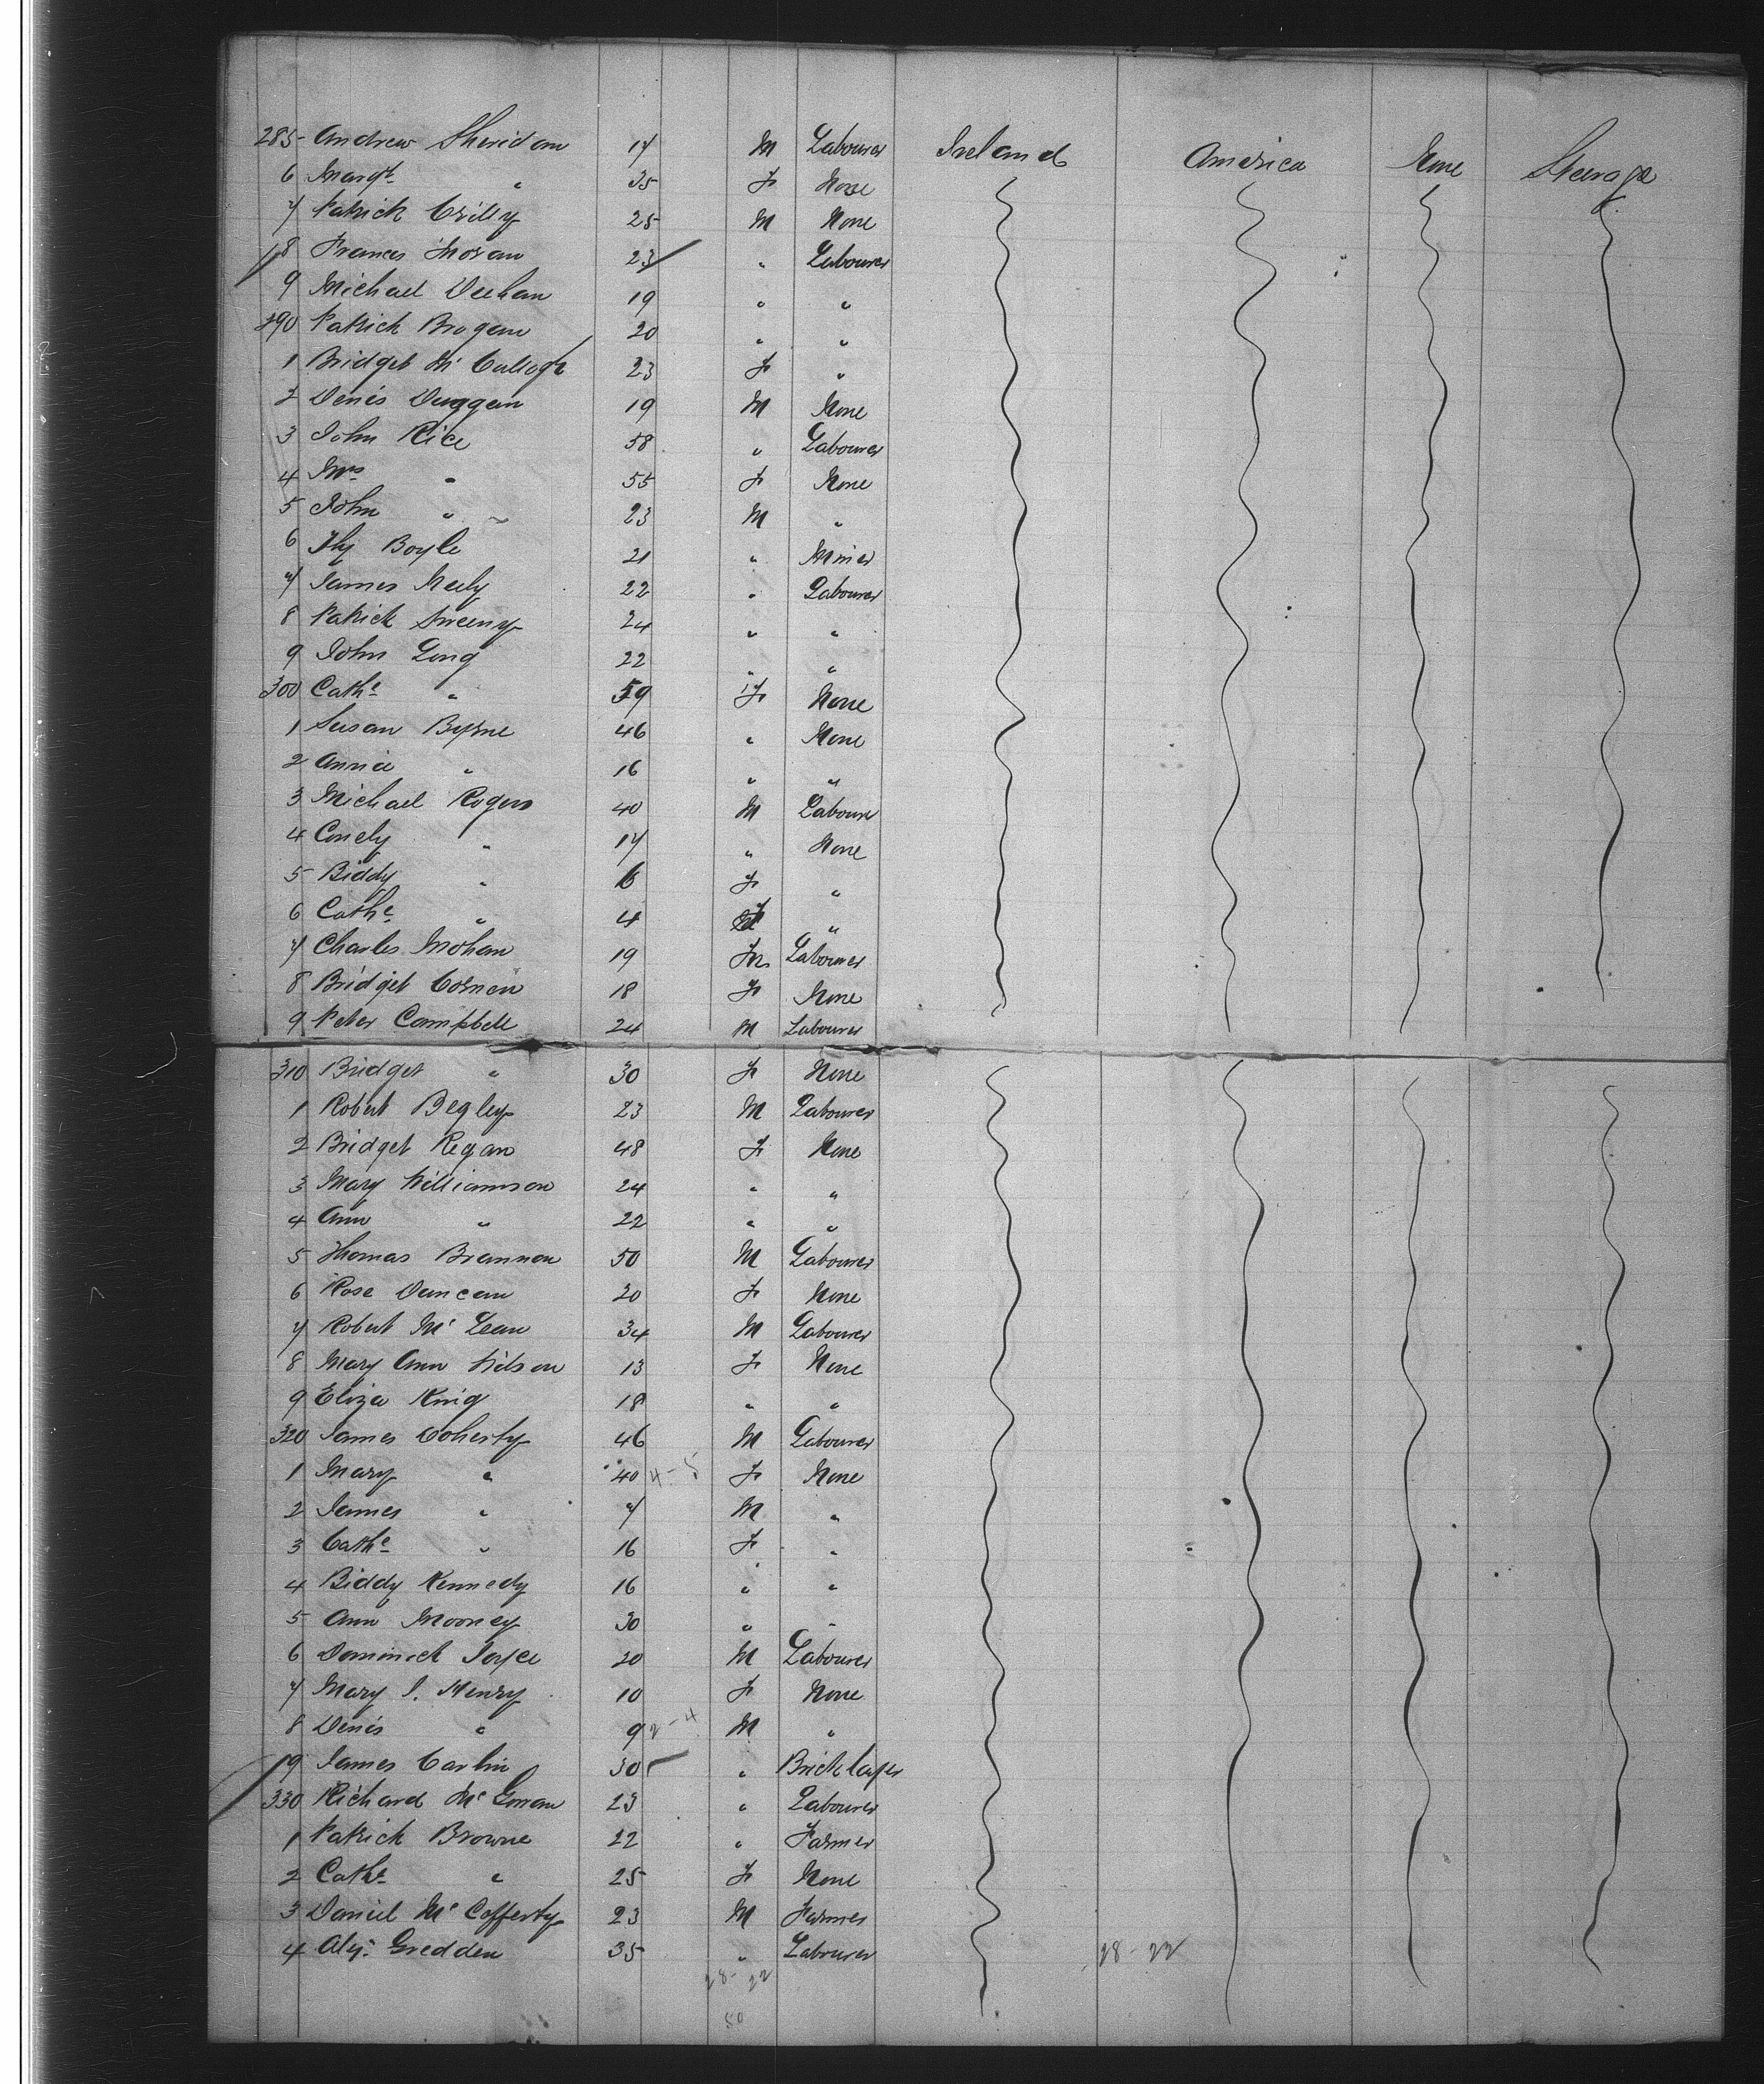 285 Andrew Sheridan 17 M Labourer Ireland America None Steerage
6 Margt. " 35 F None
7 Patrick Crilly 25 M None
8 Frances Moran 23 " Labourer
9 Michael Deehan 19 " "
290 Patrick Brogan 20 " "
1 Bridget Mc Cullogh 23 F "
2 Denis Duggan 19 M None
3 John Rice 58 " Labourer
4 Mrs " 55 F None
5 John " 23 M "
6 Boyle 21 " Miner
7 James Neely 22 " Labourer
8 Patrick Sweeny 24 " "
9 John Long 22 " "
300 Cathe " 59 F None
1 Susan Byrne 46 " None
2 Annie " 16 " "
3 Michael Rogers 40 M Labourer
4 Conely " 17 " None
5 Biddy " 6 F "
6 Cathe " 4 F "
7 Charles Mohan 19 M Labourer
8 Bridget 18 F None
9 Peter Campbell 24 M Labourer
310 Bridget " 30 F None
1 Robert Begley 23 M Labourer
2 Bridget Regan 48 F None
3 Mary Williamson 24 " "
4 Ann " 22 " "
5 Thomas Brannon 50 M Labourer
6 Rose Duncan 20 F None
7 Robert Mc Lean 34 M Labourer
8 Mary Ann Wilson 13 F None
9 Eliza King 18 " "
320 James Doherty 46 M Labourer
1 Mary " 40 4-5 F None
2 James " 7 M "
3 Cathe " 16 F "
4 Biddy Kennedy 16 " "
5 Ann Mooney 30 " "
6 Dominick Joyce 20 M Labourer
7 Mary J. Henry 10 F None
8 Denis " 9 2-4 M "
9 James Carlin 30 " Bricklayer
330 Richard Mc Gowan 23 " Labourer
1 Patrick Browne 22 " Farmer
2 Cathe " 25 F None
3 Daniel Mc Cafferty 23 M Farmer
4 Gredden 35 " Labourer
28-22 28-22
50